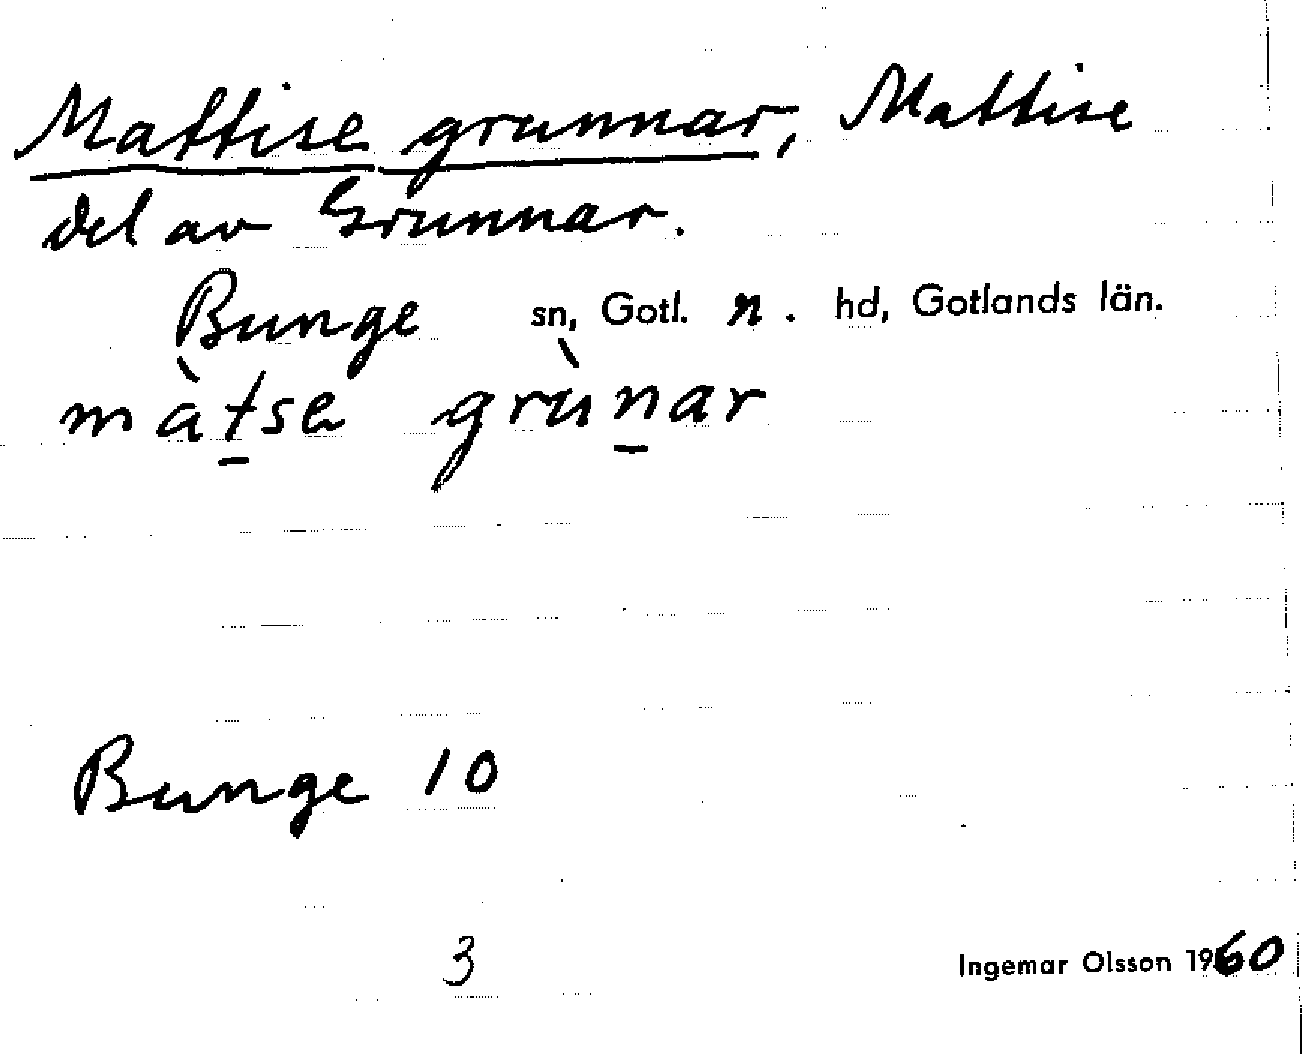 Mattise grunnar, Mattise
del av Grunnar.
Bunge sn, Gotl. n. hd, Gotlands län.
màt̲se grùn̲ar
Bunge 10
3
Ingemar Olsson 1960